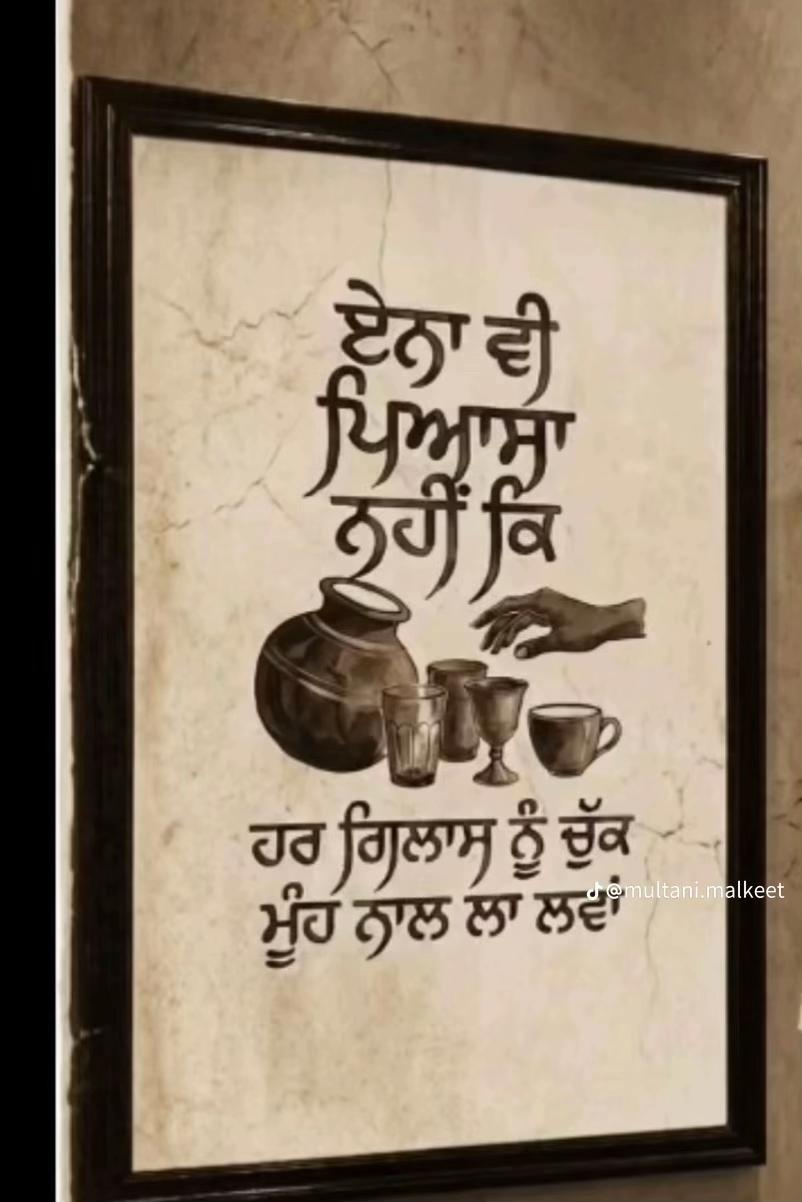 ਏਨਾ ਵੀ
ਪਿਆਸਾ
ਨਹੀਂ ਕਿ
ਹਰ ਗਿਲਾਸ ਨੂੰ ਚੁੱਕ
@multani.malkeet
ਮੂੰਹ ਨਾਲ ਲਾ ਲਵਾਂ